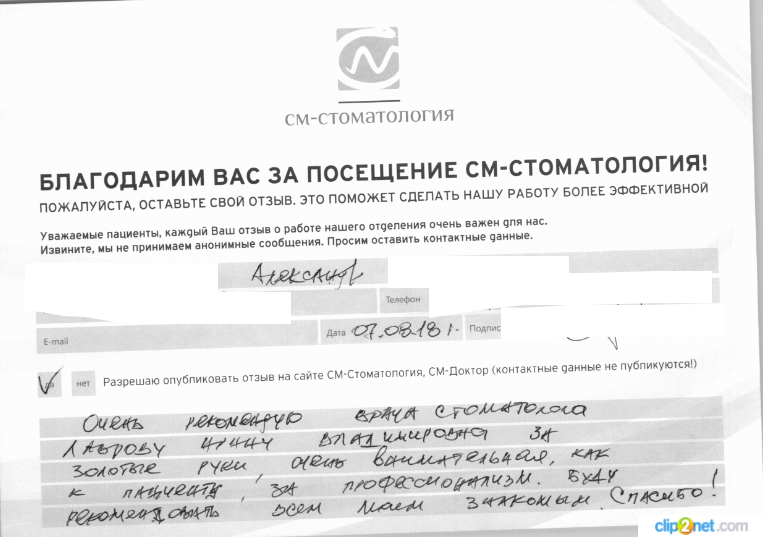 см-стоматология
БЛАГОДАРИМ ВАС ЗА ПОСЕЩЕНИЕ СМ-СТОМАТОЛОГИЯ!
ПОЖАЛУЙСТА, ОСТАВЬТЕ СВОЙ ОТЗЫВ. ЭТО ПОМОЖЕТ СДЕЛАТЬ НАШУ РАБОТУ БОЛЕЕ ЭФФЕКТИВНОЙ
Уважаемые пациенты, каждый Ваш отзыв о работе нашего отделения очень важен для нас.
Извините, мы не принимаем анонимные сообщения. Просим оставить контактные данные.
Александр
Телефон
E-mail Дата 07.0818 г. Подпис
да нет Разрешаю опубликовать отзыв на сайте СМ-Стоматология, СМ-Доктор (контактные данные не публикуются!)
Очень рекомендую врача стоматолога
Лаврову Ирину Владимировна за
золотые руки, очень внимательная, как
к пациенту, за профессионализм. Буду
рекомендовать всем моем знакомым. Спасибо!
clip2net.com